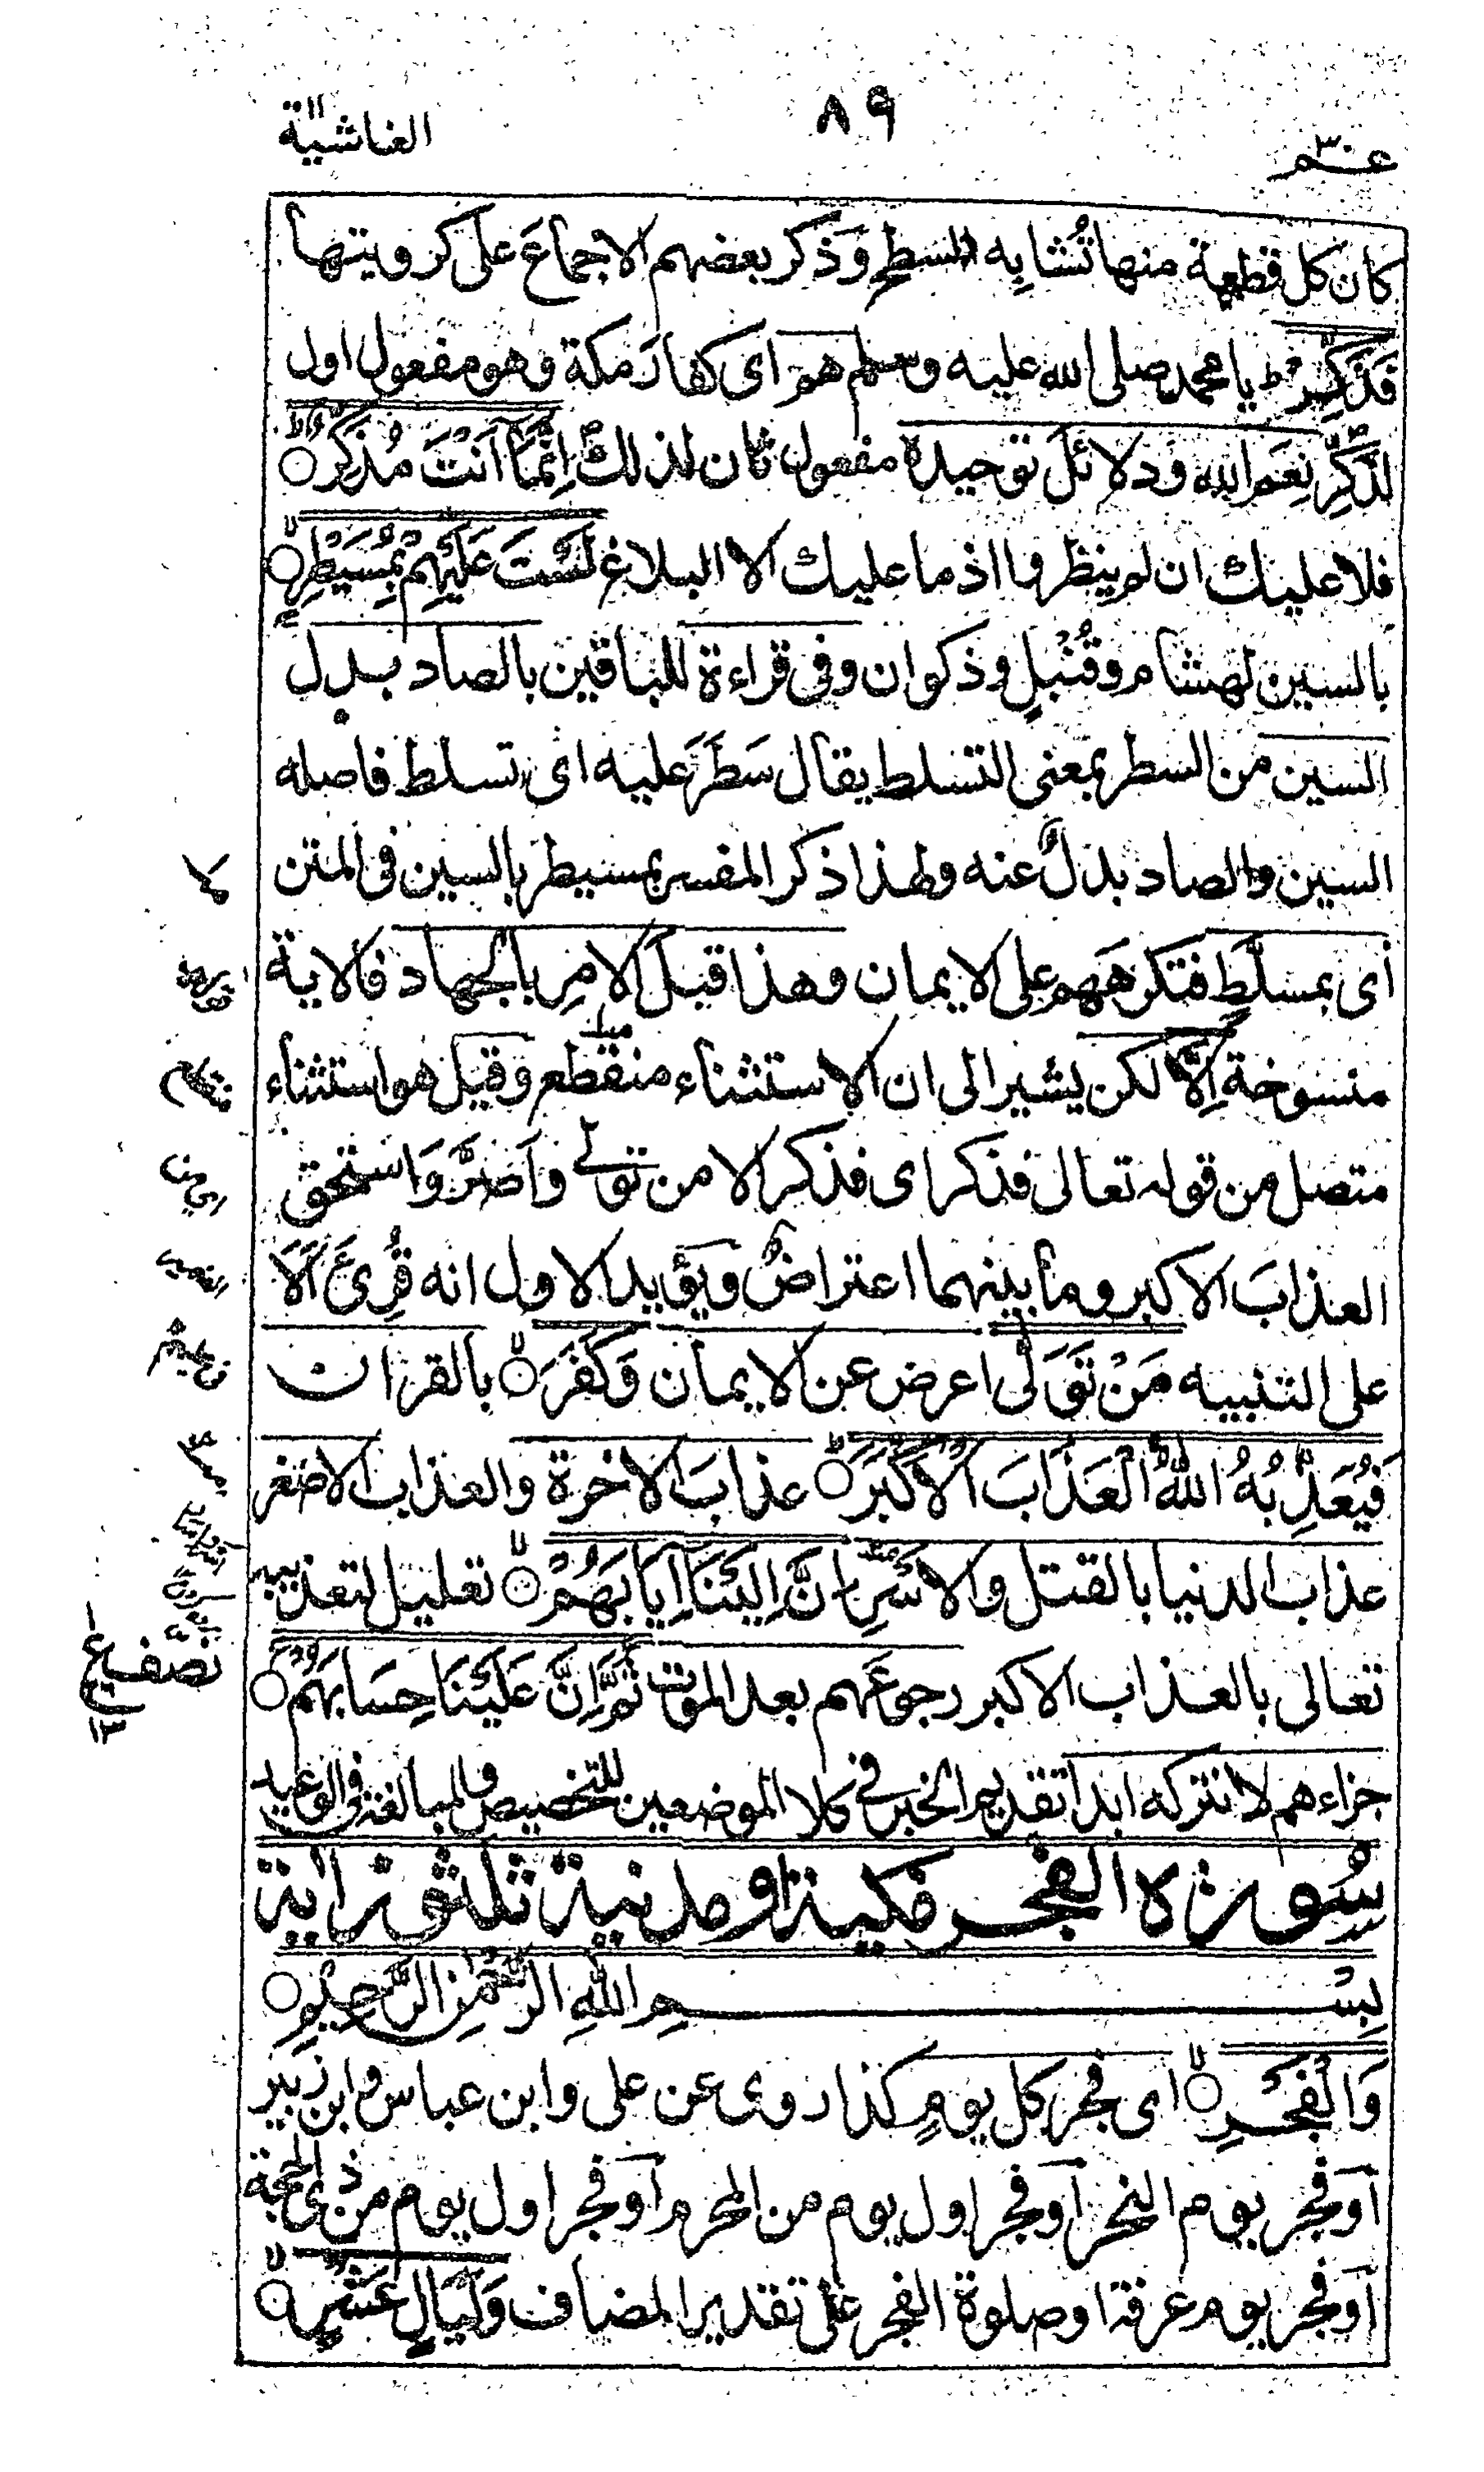 عم ٣٠
٨٩
الغاشية
كان كل قطعة منها تُشابِه السطح وَذكر بعضهم الاجماعَ على كرويتها
فَذَكِّرْ يا محمد صلى الله عليه وسلم هم اى كفارَ مكة وهو مفعول اول
لذَكِّرْ نِعَم الله ودلائلَ توحيده مفعول ثان لذلك اِنَّمَا اَنْتَ مُذَكِّرٌ
فلا عليك ان لم ينظروا اذ ما عليك الا البلاغ لَسْتَ عَلَيْهِمْ بِمُسَيْطِرٍ
بالسين لهشام وقُنْبُلٍ وذكوان وفى قراءة للباقين بالصاد بدل
السين من السطر بمعنى التسلط يقال سَطَرَ عليه اى تسلط فاصله
السين والصاد بدلٌ عنه ولهذا ذكر المفسر بمسيطر بالسين فى المتن
أى بمسلّطٍ فتكرهَهم على الايمان وهذا قبل الامرِ بالجهاد فالاية
منسوخة اِلَّا لكن يشير الى ان الاستثناء منقطع وقيل هو استثناء
متصل من قوله تعالى فذكر اى فذكر الا من تولى واَصَرَّ وَاستحق
العذابَ الاكبر وما بينهما اعتراضٌ ويؤيد الاول انه قُرِئَ اَلَا
على التنبيه مَنْ تَوَلّٰى اعرض عن الايمان وَكَفَرَ بالقران
فَيُعَذِّبُهُ اللهُ الْعَذَابَ الْاَكْبَرَ عذابَ الاخرة والعذاب الاصغر
عذاب الدنيا بالقتل والاسْرِ اِنَّ اِلَيْنَا اِيَابَهُمْ تعليل لتعذيبه
تعالى بالعذاب الاكبر رجوعَهم بعد الموت ثُمَّ اِنَّ عَلَيْنَا حِسَابَهُمْ
جزاءهم لا نتركه ابدا تقديم الخبر فى كلا الموضعين للتخصيص والمبالغة فى الوعيد
سُورة الفجر مكية او مدنية ثلثون اية
بِسْمِ اللهِ الرَّحْمٰنِ الرَّحِيْمِ
وَالْفَجْرِ اى فجر كل يومٍ كذا روى عن على وابن عباس وابن زبير
اَوفجر يوم النحر اَوفجر اول يوم من المحرم اَوفجر اول يوم من ذى الحجة
اَوفجر يوم عرفة او صلوة الفجر على تقدير المضاف وَلَيَالٍ عَشْرٍ